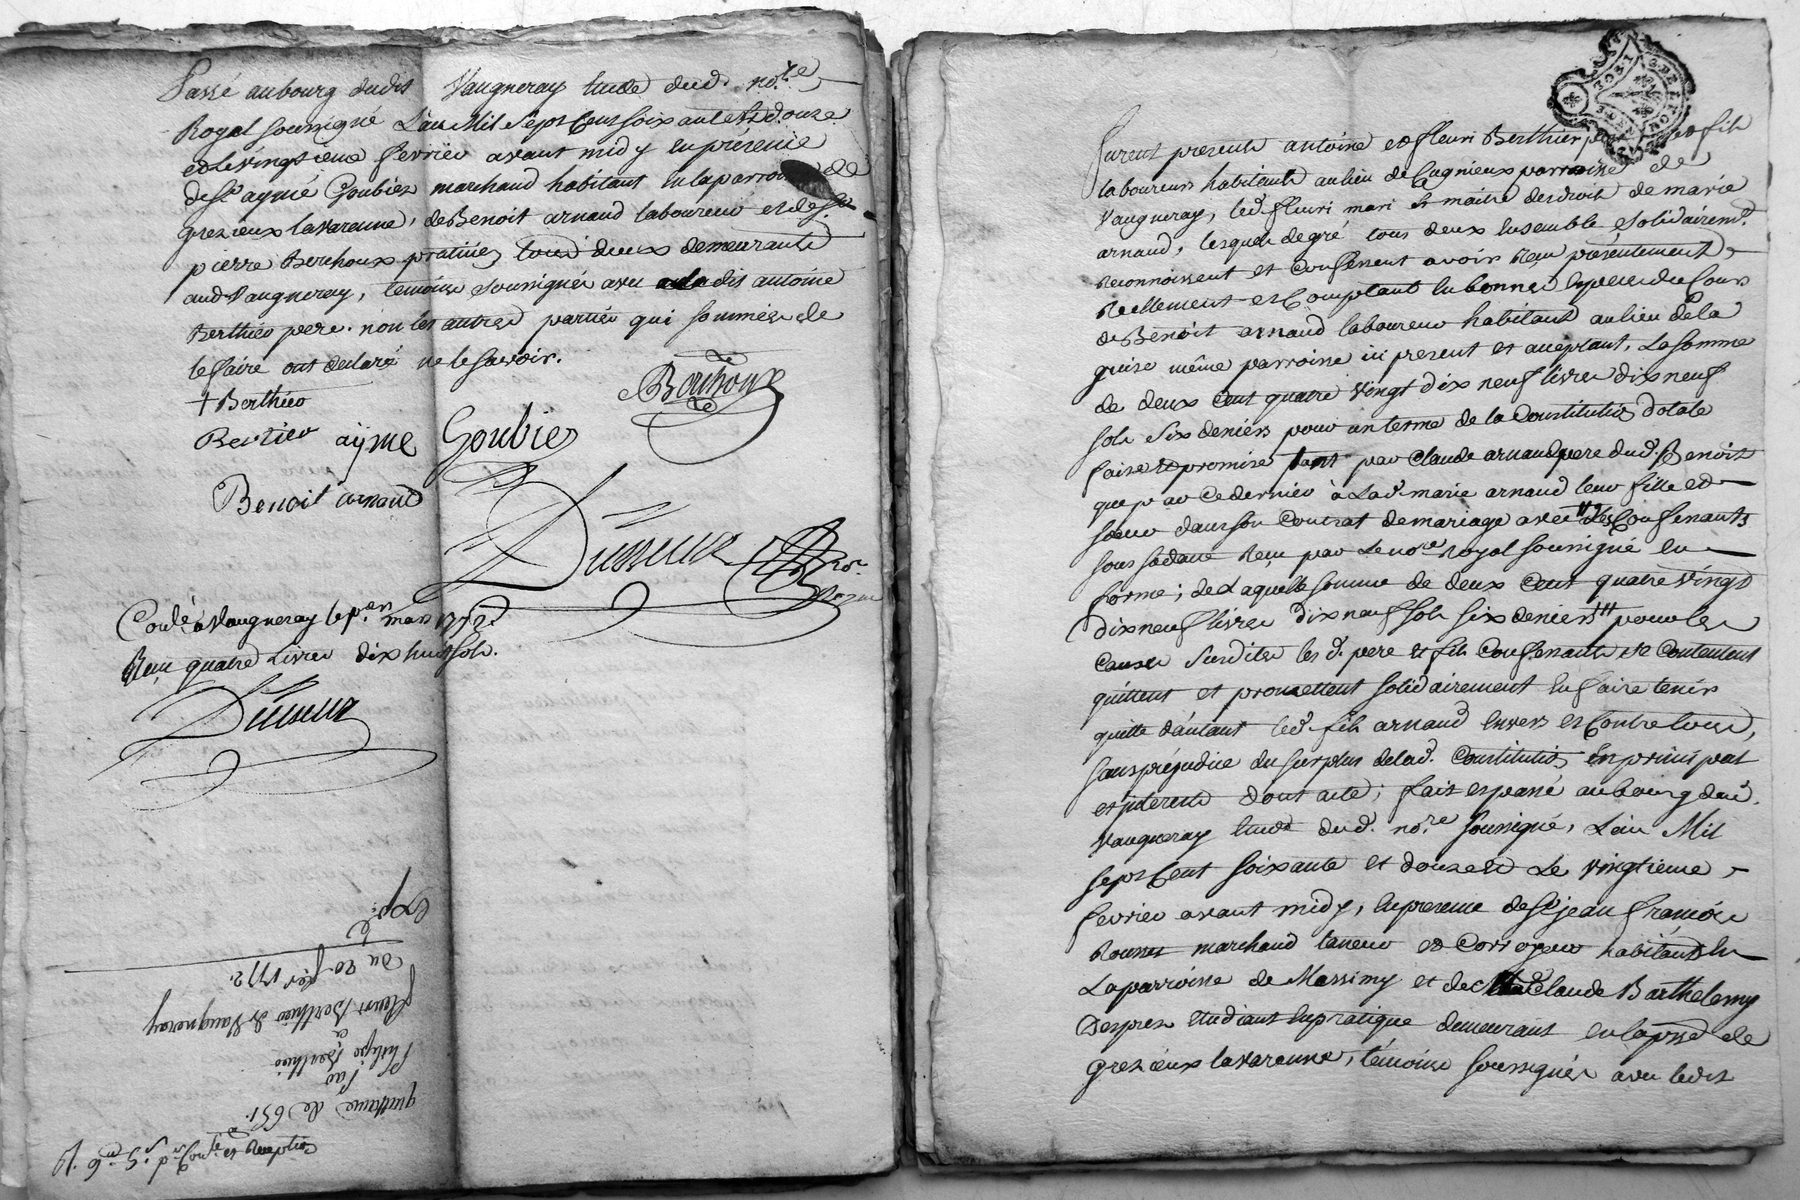 Passé au bourg dudit Vaugneray Etude dud. nore
Royal soussigné L'an Mil Sept Cent soixante et douze
et Le vingtieme fevrier avant midy en présence
de Sr aymé Goubier marchand habitant en la parroisse de
grezieux lavarenne, de Benoit arnaud laboureur et de Sr
pierre Berthoux praticien tous deux demeurants
aud Vaugneray, temoins soussignés avec ledit antoine
Berthier pere. non les autres parties qui sommées de
le faire ont declaré ne le savoir.
+ Berthier
Berthoux
Bertier ayme Goubier
Benoit arnaud
Dusseur
Conlé a Vaugneray le per mars 1772.
Reçu quatre Livres dix huit sols.
Dusseur
Expé
Du 20 fer 1772.
fleuri Berthier de Vaugneray
Philipe Berthier
par
quittance de 65l.
Furent presents antoine et fleuri Berthier pere et fils
laboureurs habitants au lieu de Cagnieux parroisse de
Vaugneray, led. fleuri mari et maitre des droits de marie
arnaud, lesquels de gré tous deux ensemble solidairemt.
reconnoissent et confessent avoir reçu présentement
réellement et Comptant en bonnes especes du Cours
de Benoit arnaud laboureur habitant au lieu de la
guise même parroisse ici present et acceptant, La somme
de deux Cent quatre vingt dix neuf livres dix neuf
sols six deniers pour un terme de la Constitution dotale
faite et promise tant par Claude arnaud pere dud. Benoit
que par Ce dernier à Lad. marie arnaud leur fille et
soeur dans son Contrat de mariage avec led. Confessants
sous sa date reçu par Le nore royal soussigné en
forme; de Laquelle somme de deux Cent quatre vingt
dix neuf livres dix neuf sols six deniers pour les
Causes Susdites les d. pere et fils Confessants se Contentent
quittent et promettent solidairement en faire tenir
quitte d'autant led. fils arnaud envers et Contre tous,
sans préjudice du surplus de lad. Constitution en principal
et interets dont acte; fait et passé au bourg dud.
Vaugneray Etude dud. nore soussigné, L'an Mil
sept Cent soixante et douze et Le vingtieme
fevrier avant midy, en presence de Sr jean françois
Rousset marchand taneur et Corroyeur habitant en
La parroisse de Messimy et de Claude Barthelemy
Despres etudiant en pratique demeurant en la psse de
grezieux lavarenne, témoins soussignés avec ledit